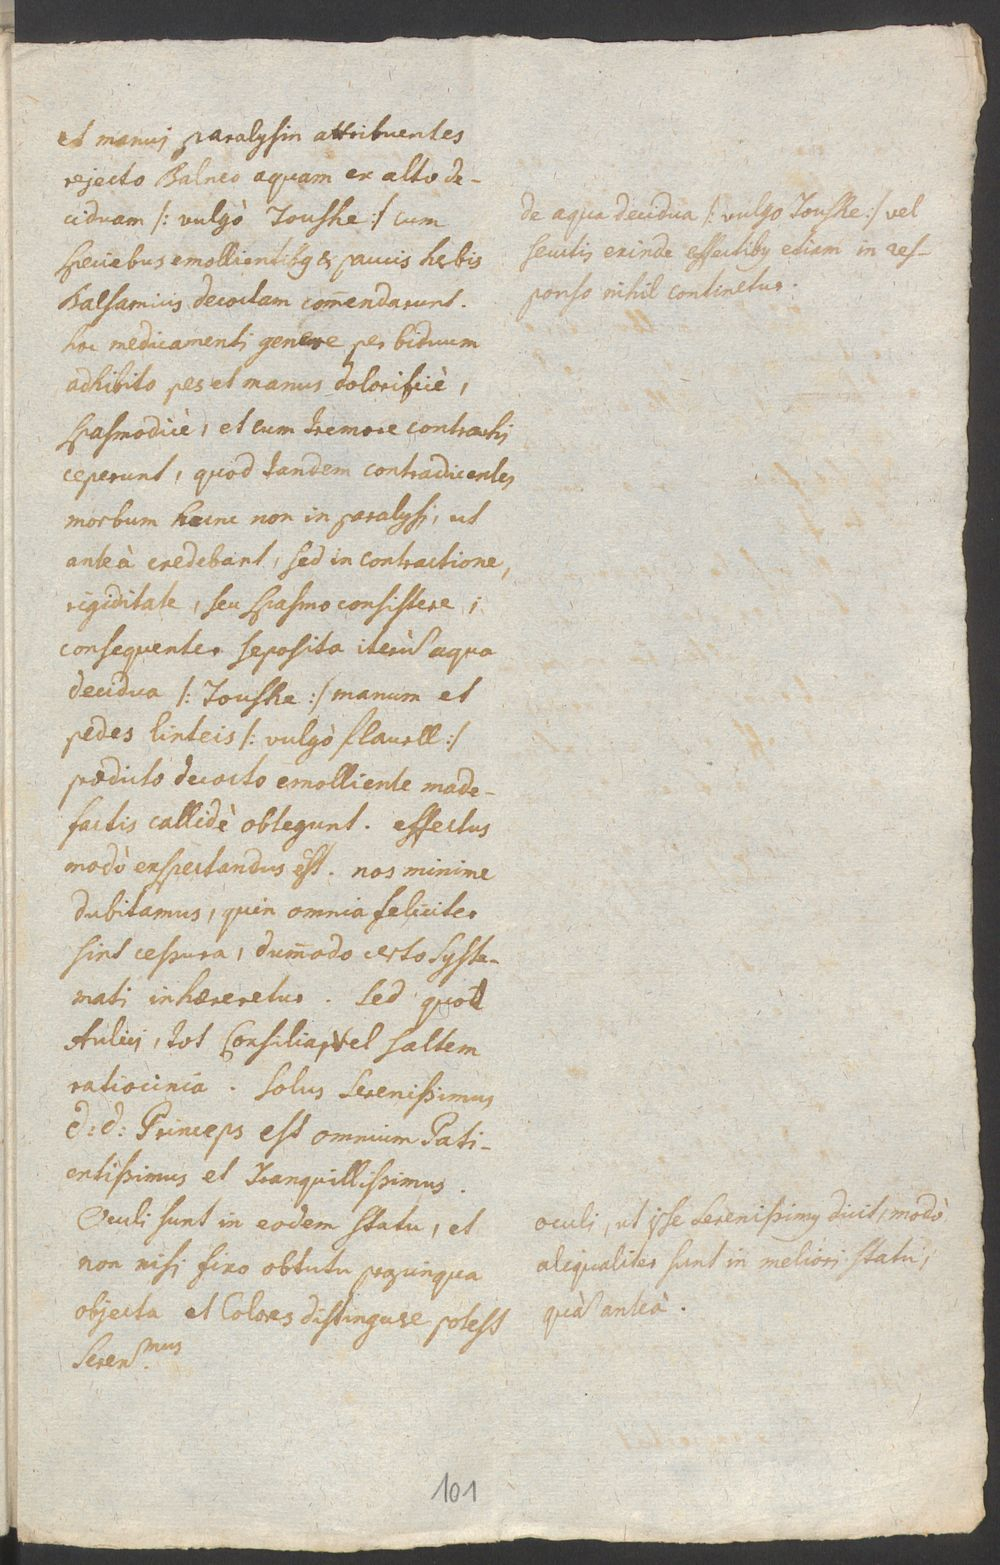 et manus paralysin attribuentes
rejecto Balneo aquam ex alto de-
ciduam /: vulgò Toushe :/ cum
speciebus emollientibq & paucis herbis
Balsamicis decoctam com̄endarunt.
hoc medicamenti genere per biduum
adhibito pes et manus dolorificè,
spasmodicè, et cum tremore contrahi
ceperunt, quod tandem contradicentes
morbum hunc non in paralysi, ut
anteà credebant, sed in contractione,
rigiditate, seu spasmo consistere,
consequenter seposita iterū aqua
decidua /: Toushe :/ manum et
pedes linteis /: vulgò flanell :/
prædicto decocto emolliente made-
factis callidè obtegunt. effectus
modò exspectandus est. nos minime
dubitamus, quin omnia feliciter
sint cessura, dum̄odo certo syste-
mati inhæreretur. Sed quot
Aulici, tot Consilia, vel saltem
ratiocinia. Solus Serenissimus
d: d: Princeps est omnium Pati-
entissimus et Tranquillissimus.
Oculi sunt in eodem statu, et
non nisi fixo obtutu propinqua
objecta et Colores distinguere potest
Seren.mus
de aqua decidua /: vulgo Toushe :/ vel
secutis exinde effectibq etiam in res-
ponso nihil continetur.
oculi, ut ipse Serenissimq dicit, modò
aliqualiter sunt in meliori statu,
quā anteà.
101